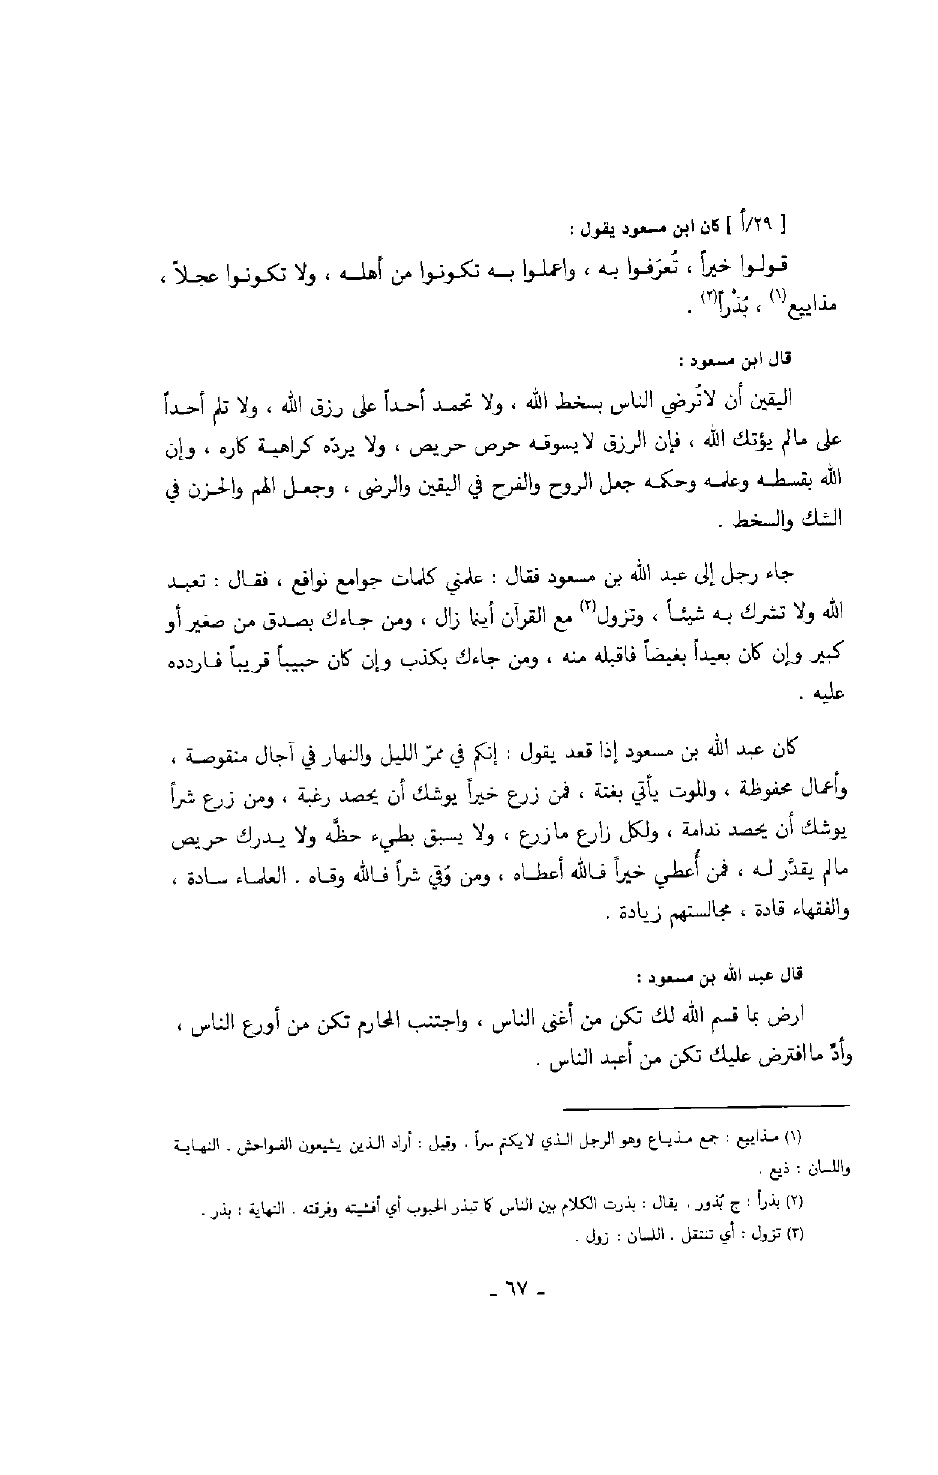 [ ٢٩/أ ] كان ابن مسعود يقول :
قولوا خيراً ، تُعرَفوا به ، واعملوا به تكونوا من أهله ، ولا تكونوا عجلاً ،
مذاييع(١) ، بُذْراً(٢) .
قال ابن مسعود :
اليقين أن لاتُرضي الناس بسخط الله ، ولا تحمد أحداً على رزق الله ، ولا تلم أحداً
على مالم يؤتك الله ، فإن الرزق لايسوقه حرص حريص ، ولا يردّه كراهية كاره ، وإن
الله بقسطه وعلمه وحكمه جعل الروح والفرح في اليقين والرضى ، وجعل الهم والحزن في
الشك والسخط .
جاء رجل إلى عبد الله بن مسعود فقال : علمني كلمات جوامع نوافع ، فقال : تعبد
الله ولا تشرك به شيئاً ، وتزول(٣) مع القرآن أينما زال ، ومن جاءك بصدق من صغير أو
كبير وإن كان بعيداً بغيضاً فاقبله منه ، ومن جاءك بكذب وإن كان حبيباً قريباً فاردده
عليه .
كان عبد الله بن مسعود إذا قعد يقول : إنكم في ممرّ الليل والنهار في آجال منقوصة ،
وأعمال محفوظة ، والموت يأتي بغتة ، فمن زرع خيراً يوشك أن يحصد رغبة ، ومن زرع شراً
يوشك أن يحصد ندامة ، ولكل زارع مازرع ، ولا يسبق بطيء حظَّه ولا يدرك حريص
مالم يقدَّر له ، فمن أُعطي خيراً فالله أعطاه ، ومن وُقي شراً فالله وقاه . العلماء سادة ،
والفقهاء قادة ، مجالستهم زيادة .
قال عبد الله بن مسعود :
ارض بما قسم الله لك تكن من أغنى الناس ، واجتنب المحارم تكن من أورع الناس ،
وأدّ ماافترض عليك تكن من أعبد الناس .
(١) مذاييع : جمع مذياع وهو الرجل الذي لايكتم سراً . وقيل : أراد الذين يشيعون الفواحش . النهاية
واللسان : ذيع .
(٢) بذراً : ج بُذور . يقال : بذرت الكلام بين الناس كما تبذر الحبوب أي أفشيته وفرقته . النهاية : بذر .
(٣) تزول : أي تنتقل . اللسان : زول .
- ٦٧ -